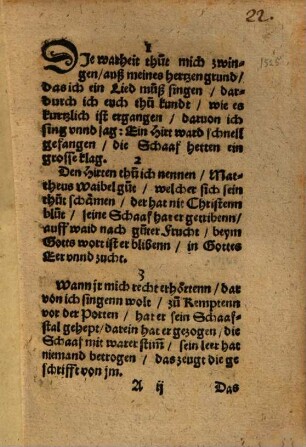 22.
1525
1
DJe warheit thůt mich zwin-
gen/ auß meines hertzen grund/
das ich ein Lied můß singen/ dar-
durch ich euch thů kundt/ wie es
kurtzlich ist ergangen/ daruon ich
sing vnnd sag: Ein Hirt ward schnell
gefangen/ die Schaaf hetten ein
grosse klag.
2
Den Hirten thů ich nennen/ Mat-
theus Waibel gůt/ welcher sich sein
thůt schåmen/ der hat nie Christenn
blůt/ seine Schaaf hat er getribenn/
auff waid nach gůter Frucht/ beym
Gotts wort ist er blibenn/ in Gottes
Eer vnnd zucht.
3
Wann jr mich recht erhörtenn/ dar
von ich singenn wolt/ zů Kemptenn
vor der Potten/ hat er sein Schaaf-
stal gehept/ darein hat er gezogen/ die
Schaaf mit warer stim̃/ sein leer hat
niemand betrogen/ das zeugt die ge
schrifft von jm.
A ij Das